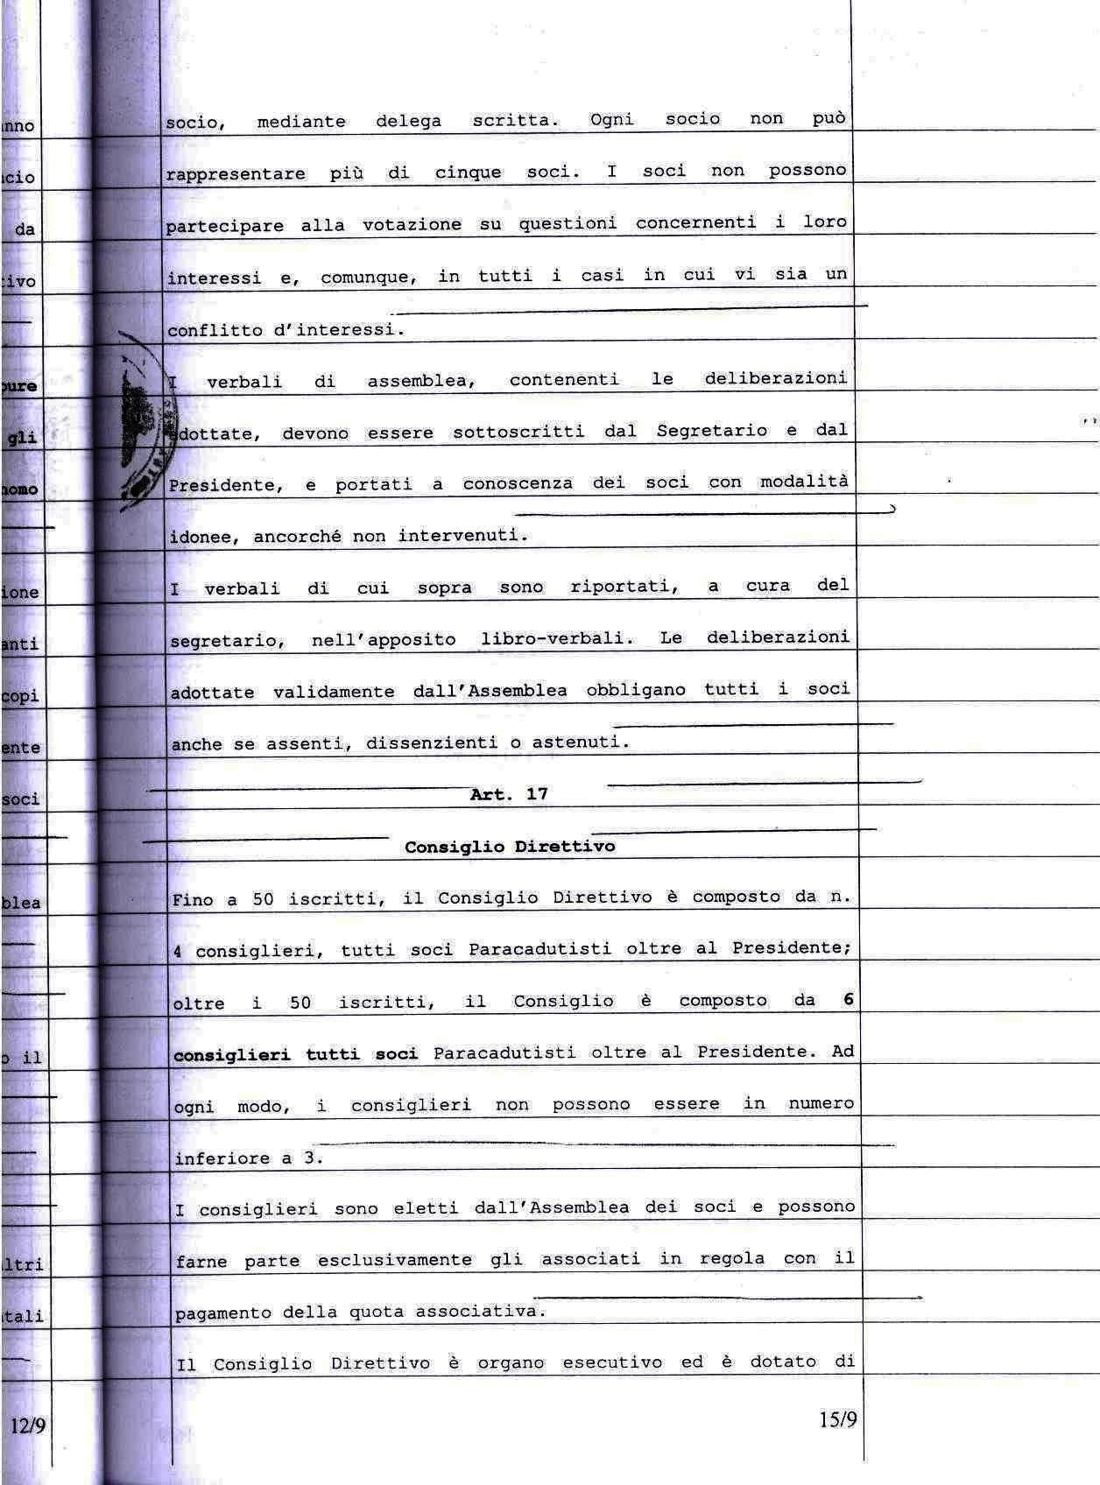 socio, mediante delega scritta. Ogni socio non può
rappresentare più di cinque soci. I soci non possono
partecipare alla votazione su questioni concernenti i loro
interessi e, comunque, in tutti i casi in cui vi sia un
conflitto d'interessi.
I verbali di assemblea, contenenti le deliberazioni
adottate, devono essere sottoscritti dal Segretario e dal
Presidente, e portati a conoscenza dei soci con modalità
idonee, ancorché non intervenuti.
I verbali di cui sopra sono riportati, a cura del
segretario, nell'apposito libro-verbali. Le deliberazioni
adottate validamente dall'Assemblea obbligano tutti i soci
anche se assenti, dissenzienti o astenuti.
Art. 17
Consiglio Direttivo
Fino a 50 iscritti, il Consiglio Direttivo è composto da n.
4 consiglieri, tutti soci Paracadutisti oltre al Presidente;
oltre i 50 iscritti, il Consiglio è composto da 6
consiglieri tutti soci Paracadutisti oltre al Presidente. Ad
ogni modo, i consiglieri non possono essere in numero
inferiore a 3.
I consiglieri sono eletti dall'Assemblea dei soci e possono
farne parte esclusivamente gli associati in regola con il
pagamento della quota associativa.
Il Consiglio Direttivo è organo esecutivo ed è dotato di
15/9
da
gli
soci
il
12/9